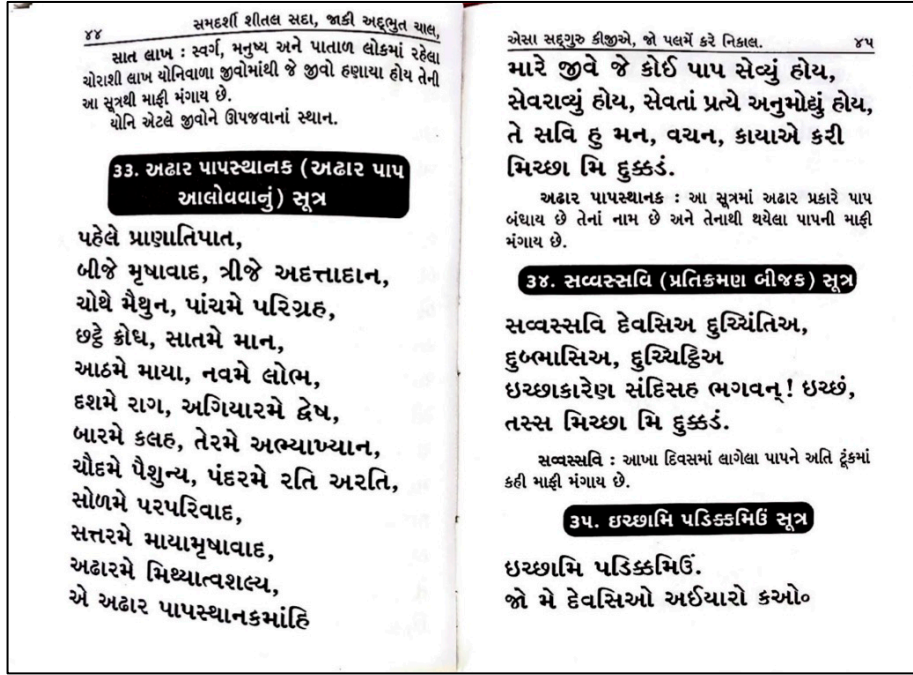 ૪૪
સમદર્શી શીતલ સદા, જાકી અદ્ભુત ચાલ,
સાત લાખ : સ્વર્ગ, મનુષ્ય અને પાતાળ લોકમાં રહેલા
ચોરાશી લાખ યોનિવાળા જીવોમાંથી જે જીવો હણાયા હોય તેની
આ સૂત્રથી માફી મંગાય છે.
યોનિ એટલે જીવોને ઊપજવાનાં સ્થાન.
૩૩. અઢાર પાપસ્થાનક (અઢાર પાપ
આલોવવાનું) સૂત્ર
પહેલે પ્રાણાતિપાત,
બીજે મૃષાવાદ, ત્રીજે અદત્તાદાન,
ચોથે મૈથુન, પાંચમે પરિગ્રહ,
છટ્ઠે ક્રોધ, સાતમે માન,
આઠમે માયા, નવમે લોભ,
દશમે રાગ, અગિયારમે દ્વેષ,
બારમે કલહ, તેરમે અભ્યાખ્યાન,
ચૌદમે પૈશુન્ય, પંદરમે રતિ અરતિ,
સોળમે પરપરિવાદ,
સત્તરમે માયામૃષાવાદ,
અઢારમે મિથ્યાત્વશલ્ય,
એ અઢાર પાપસ્થાનકમાંહિ
એસા સદ્ગુરુ કીજીએ, જો પલમેં કરે નિકાલ.
૪૫
મારે જીવે જે કોઈ પાપ સેવ્યું હોય,
સેવરાવ્યું હોય, સેવતાં પ્રત્યે અનુમોદ્યું હોય,
તે સવિ હુ મન, વચન, કાયાએ કરી
મિચ્છા મિ દુક્કડં.
અઢાર પાપસ્થાનક : આ સૂત્રમાં અઢાર પ્રકારે પાપ
બંધાય છે તેનાં નામ છે અને તેનાથી થયેલા પાપની માફી
મંગાય છે.
૩૪. સવ્વસ્સવિ (પ્રતિક્રમણ બીજક) સૂત્ર
સવ્વસ્સવિ દેવસિઅ દુચ્ચિંતિઅ,
દુબ્ભાસિઅ, દુચ્ચિટ્ઠિઅ
ઇચ્છાકારેણ સંદિસહ ભગવન્! ઇચ્છં,
તસ્સ મિચ્છા મિ દુક્કડં.
સવ્વસ્સવિ : આખા દિવસમાં લાગેલા પાપને અતિ ટૂંકમાં
કહી માફી મંગાય છે.
૩૫. ઇચ્છામિ પડિક્કમિઉં સૂત્ર
ઇચ્છામિ પડિક્કમિઉં.
જો મે દેવસિઓ અઈયારો કઓ૦